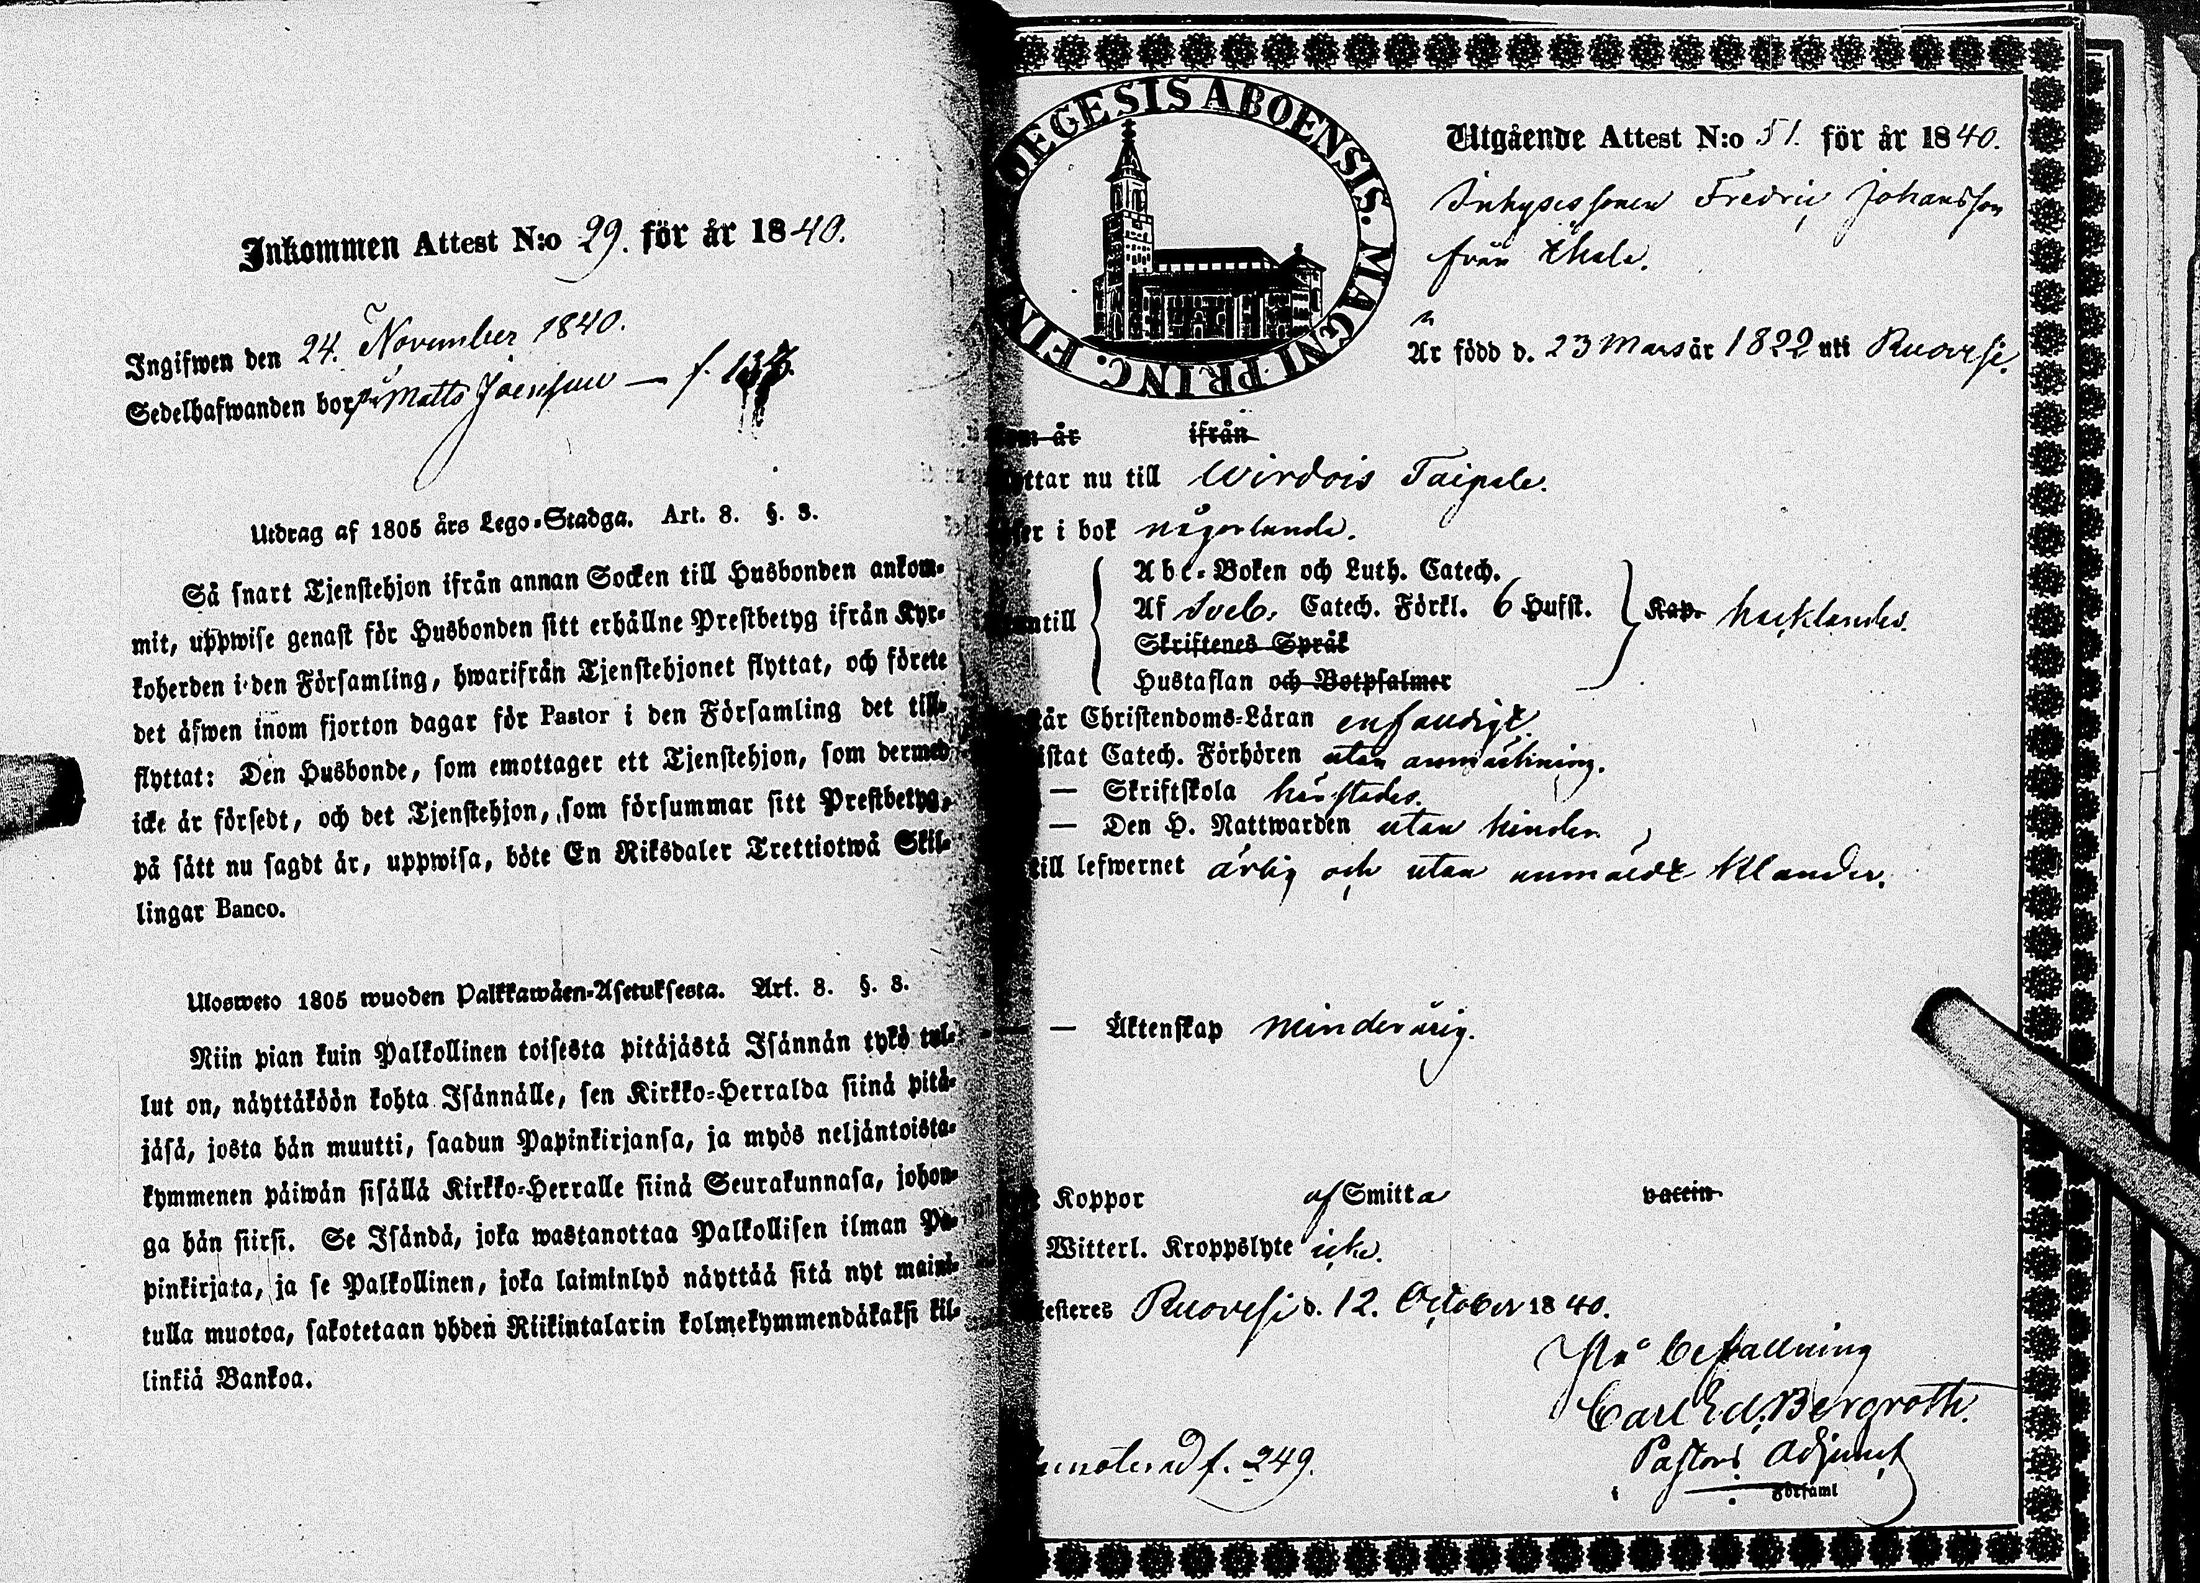 Inkommen Attest N:o 29. för år 1840.
Ingifwen den 24. November 1840.
Sedelhafwanden bor på Matts Joensuu — f.
Utdrag af 1805 års Lego-Stadga. Art. 8. §. 3.
Så snart Tjenstehjon ifrån annan Socken till Husbonden ankom-
mit, uppwise genast för Husbonden sitt erhållne Prestbetyg ifrån Kyr-
koherden i den Församling, hwarifrån Tjenstehjonet flyttat, och förete
det äfwen inom fjorton dagar för Pastor i den Församling det till-
flyttat: Den Husbonde, som emottager ett Tjenstehjon, som dermed
icke är försedt, och det Tjenstehjon, som försummar sitt Prestbetyg,
på sätt nu sagdt är, uppwisa, böte En Riksdaler Trettiotwå Skil-
lingar Banco.
Ulosweto 1805 wuoden Palkkawäen-Asetuksesta. Art. 8. §. 3.
Niin pian kuin Palkollinen toisesta pitäjästä Isännän tykö tul-
lut on, näyttäköön kohta Isännälle, sen Kirkko-Herralda siinä pitä-
jäsä, josta hän muutti, saadun Papinkirjansa, ja myös neljäntoista-
kymmenen päiwän sisällä Kirkko-Herralle siinä Seurakunnasa, johon-
ga hän siirsi. Se Isändä, joka wastanottaa Palkollisen ilman Pa-
pinkirjata, ja se Palkollinen, joka laiminlyö näyttää sitä nyt maini-
tulla muotoa, sakotetaan yhden Riikintalarin kolmekymmendäkaksi kil-
linkiä Bankoa.
DEGESIS ABOENSIS. MAGNI PRINC. FIN
Utgående Attest N:o 51. för år 1840.
Inhysessonen Fredric Johansson
från
Är född d. 23 Mars år 1822 uti Ruovesi.
år ifrån
ttar nu till Wirdois Taipale.
i bok någorlunda.
Abc-Boken och Luth. Catech.
Af Sveb. Catech. Förkl. 6 Hufst.
Skriftenes Språk
Hustaflan och Botpsalmer
ntill
Kap. hacklandes.
Christendoms-Läran enfaudigt.
istat Catech. Förhören utan anmärkning.
— Skriftskola härstädes.
— Den H. Nattwarden utan hinder
till lefwernet ärlig och utan anmäldt klander.
— Äktenskap minderårig.
Koppor af Smitta vaccin
Witterl. Kroppslyte icke.
esteres Ruovesi d. 12. October 1840.
På befallning
Carl Ed. Bergroth.
Pastors Adjunct
i Församl
f. 249.